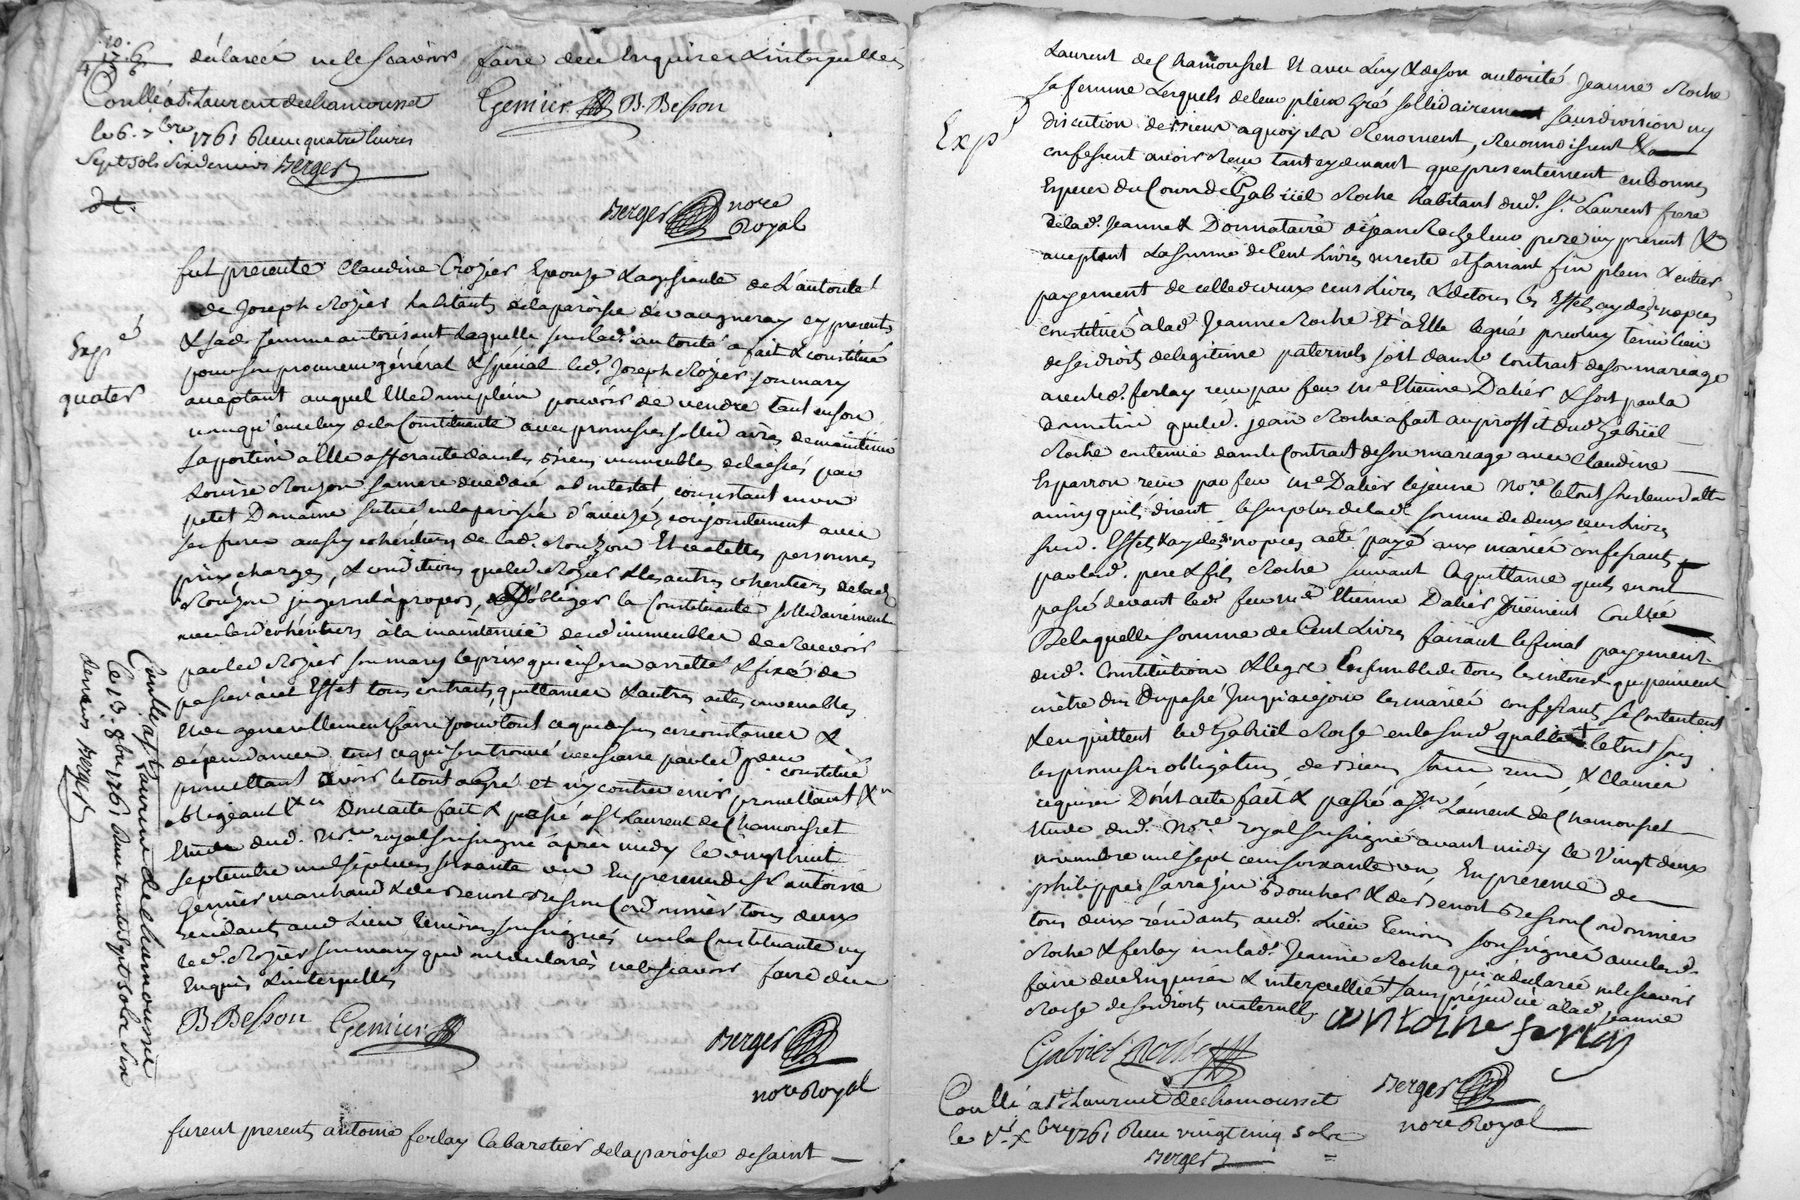 declarée ne le scavoir faire de ce Enquise & interpellée
10.
17. 6
Conllé a St. Laurent de chamousset
le 6. 7bre 1761 Receu quatre livres
sept sols six deniers Berger
Gemier B. Besson
Berger nore
Royal
fut presente Claudine Crozier Epouze & agissante de L'autorité
de Joseph Rozier habitants de la paroisse de vaugneray icy presents
Expé
quater
& sad. femme autorisant laquelle sous lad. autorité a fait & constitué
pour son procureur général & spécial led. Joseph Rozier son mary
acceptant auquel Elle donne plein pouvoir de vendre tant en son
nom qu'en celuy de la Constituante avec promesses sollidaires de maintenir
sa portion a Elle afferante dans les biens immeubles delaissés par
Louise Rouzon sa mere decedée ab intestat, consistant en un
petit Domaine situé en la paroisse d'aveize, conjointement avec
ses freres aussy cohéritiers de lad. Rouzon Et ce a telles personnes
prix charges, & conditions que led. Rozier & les autres cohéritiers de lad.
Rouzon jugeront à propos, d'obliger la Constituante sollidairement
avec lesd. cohéritiers à la maintenue desd. immeubles de Recevoir
par led. Rozier son mary le prix qui en sera arretté & fixé de
passer à cet Effet tous contrats, quittances & autres actes convenables
Et de generallement faire pour tout ce que dessus circonstances &
dépendances tout ce qui sera trouvé necessaire par led. pr. constitué
promettant avoir le tout agréé et n'y contrevenir, promettant &a
obligeant &a Dont acte fait & passé a St. Laurent de Chamousset
Etude dud. Nore. royal soussigné après midy le vingt huit
septembre mil sept cens soixante un En presence de Sr. antoine
Gemier marchand & de Benoit Besson Cordonnier tous deux
residants aud. Lieu temoins soussignés non la Constituante ny
led. Rozier son mary qui ont declarés ne le scavoir faire de ce
Enquis & interpellés
B Besson Gemier
Berger
nore Royal
Conllé a St. Laurent de chamousset
le 13. 8bre 1761 Receu trente sept sols six
deniers Berger
furent presents antoine ferlay Cabaretier de la paroisse de saint
Laurent de Chamousset Et avec Luy & de son autorité Jeanne Roche
Expé
sa femme Lesquels de leur plein gré sollidairement sans division ny
discution de biens a quoy ils Renoncent, Reconnoissent &
confessent avoir Receu tant cy devant que presentement en bonnes
Especes du Cours de Gabriël Roche habitant dud. St. Laurent frere
de lad. Jeanne & Donnataire de jean Roche leur pere icy present &
acceptant La somme de Cent Livres en reste et faisant fin plein & entier
payement de celle de deux cens Livres & de tous les Effets, aydes de nopces
constitués à lad. Jeanne Roche Et à Elle legués pour luy tenir lieu
de ses droits de legitime paternels soit dans le contrat de son mariage
avec led. ferlay receu par feu me Etienne Dalier & soit par la
donnation que led. jean Roche a fait au proffit dud. Gabriël
Roche contenue dans le Contrat de son mariage avec Claudine
Esparron receu par feu me Dalier lejeune Nore.
ainsy qu'ils disent le surplus de lad. somme de deux cens Livres
susd. Effets & aydes de nopces a eté payé aux mariés confessants
par lesd. pere & fils Roche suivant la quittance qu'ils en ont
passé devant led. feu me Etienne Dalier düement Conllée
De laquelle somme de Cent Livres faisant le final payement
dud. Constitution & legs Ensemble de tous les interets qui peuvent
n'être dus Du passé Jusqu'à ce jour les mariés confessants se Contentent
& en quittent led. Gabriël Roche en la susd. qualité le tout sous
les promesses obligations de biens & clauses
requises Dont acte fait & passé a St. Laurent de Chamousset
Etude dud. Nore. royal soussigné avant midy le Vingt deux
novembre mil sept cens soixante un En presence de
philippes sarrazin Boucher & de Benoit Besson Cordonnier
tous deux résidants aud. Lieu temoins soussignés avec lesd.
Roche & ferlay non lad. Jeanne Roche qui a declarée ne le scavoir
faire de ce Enquise & interpellée sans préjudice a lad. jeanne
Roche de ses droits maternels
antoine ferlay
Gabriel Roche
Berger
nore Royal
Conllé a St. Laurent de chamousset
le 1er. Xbre 1761 Receu vingt cinq sols
Berger